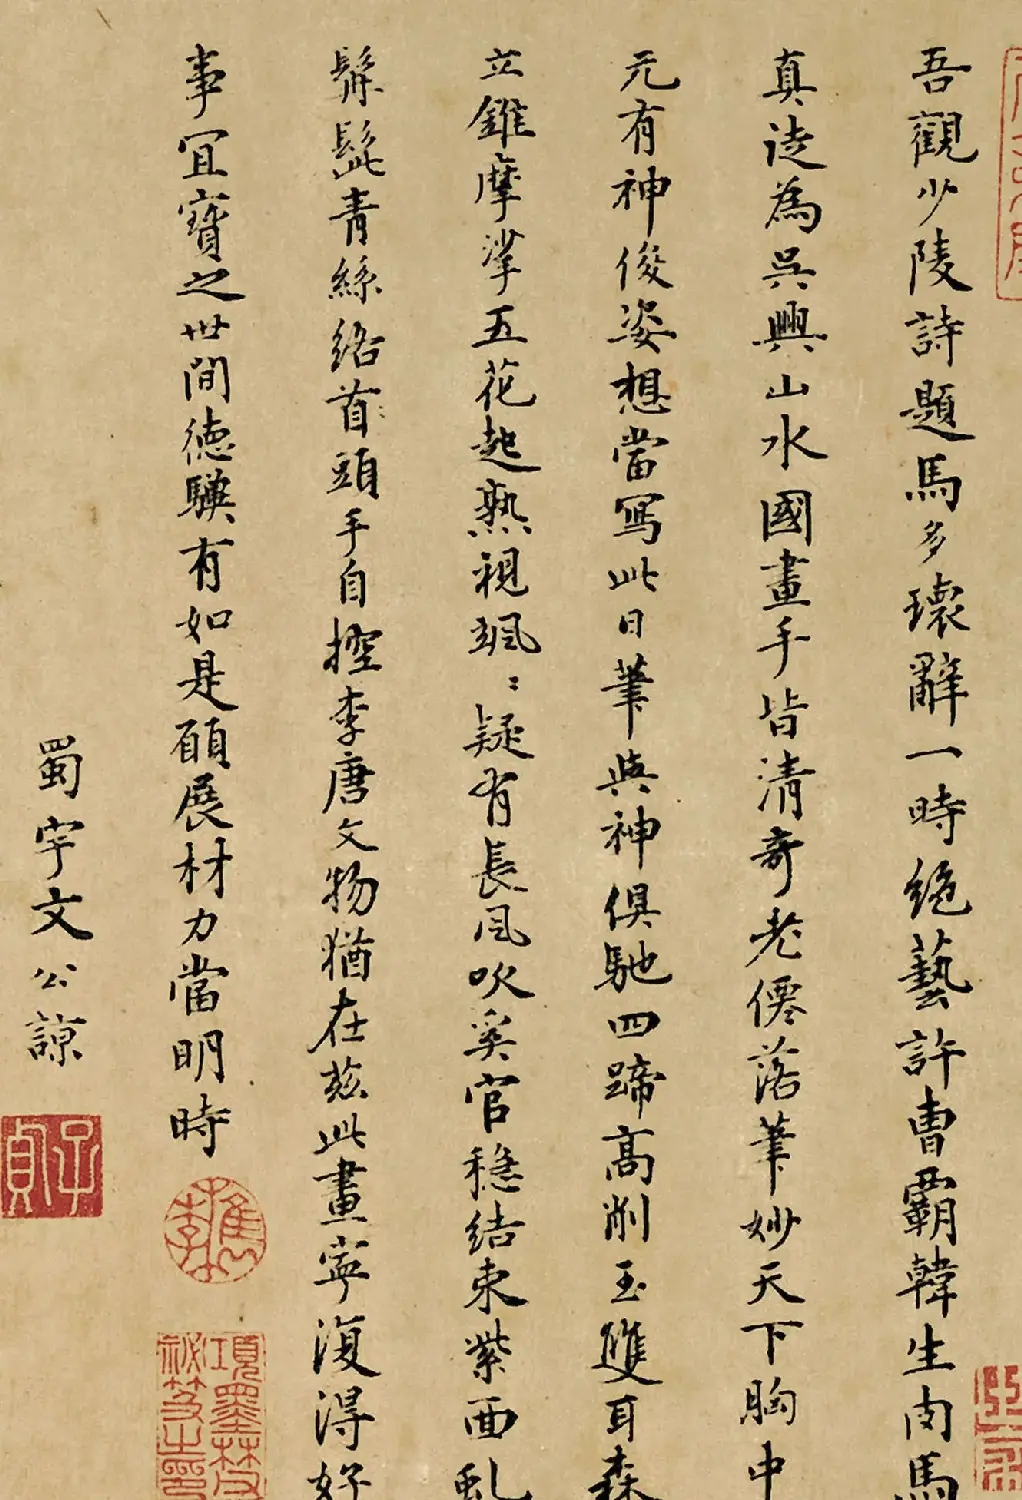 吾觀少陵詩題馬多瓌辭一時絕藝許曹霸韓生肉馬
真徒為吳興山水國畫手皆清奇老僊落筆妙天下胸中
元有神俊姿想當寫此日筆與神俱馳四蹄高削玉雙耳森
立錐摩挲五花起熟視颯〻疑有長風吹奚官穩結束紫面亂
髯髭青絲絡首頭手自控李唐文物猶在茲此畫寧復得好
事宜寶之世間德驥有如是願展材力當明時
蜀宇文公諒
子貞
項墨林